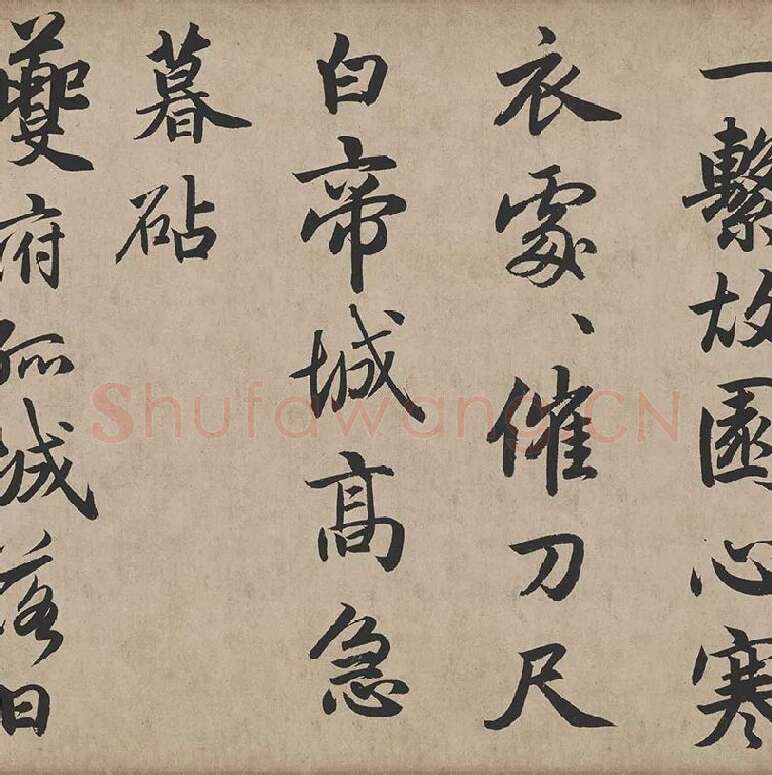 一繫故園心寒
衣處、催刀尺
白帝城高急
暮砧
夔府孤城落日
Shufawang.CN